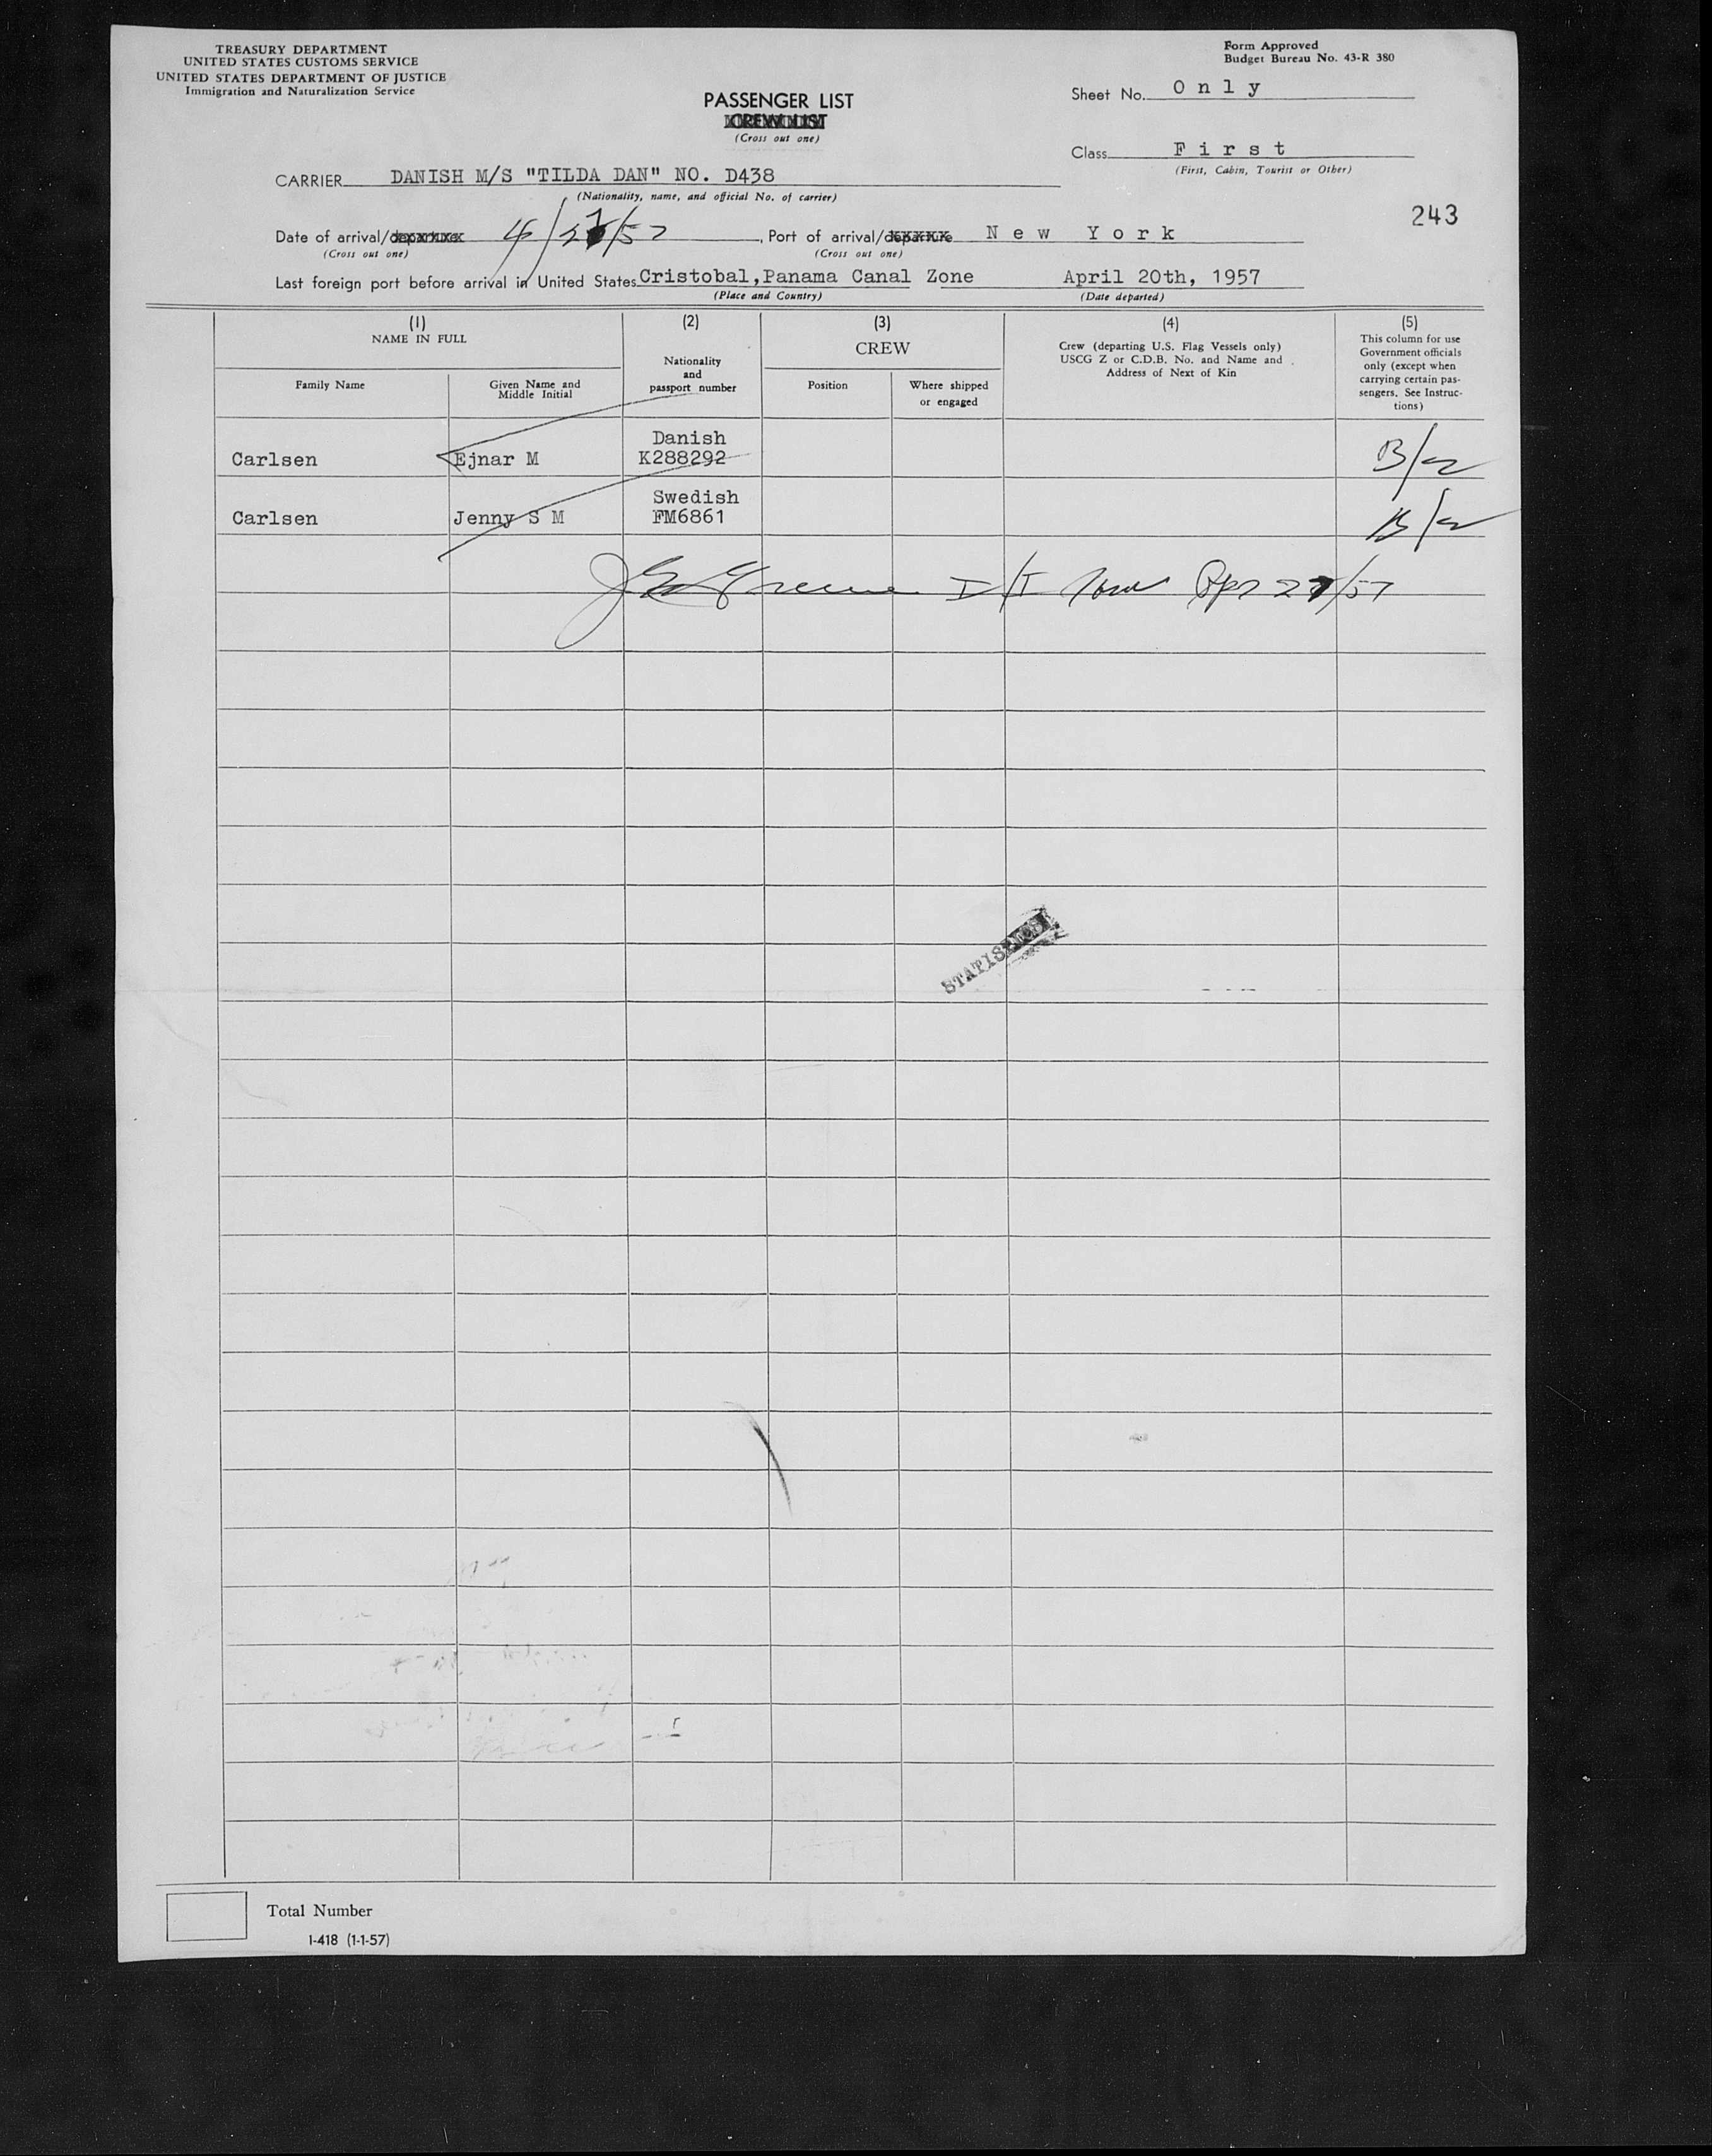 TREASURY DEPARTMENT
UNITED STATES CUSTOMS SERVICE
UNITED STATES DEPARTMENT OF JUSTICE
Immigration and Naturalization Service
Form Approved
Budget Bureau No. 43-R 380
PASSENGER LIST
CREW LIST
(Cross out one)
Sheet No. Only
Class First
(First, Cabin, Tourist or Other)
CARRIER DANISH M/S "TILDA DAN" NO. D438
(Nationality, name, and official No. of carrier)
243
Date of arrival/departure 4/27/57, Port of arrival/departure New York
(Cross out one) (Cross out one)
Last foreign port before arrival in United States Cristobal,Panama Canal Zone April 20th, 1957
(Place and Country) (Date departed)
(1)
NAME IN FULL
Family Name
Given Name and
Middle Initial
(2)
Nationality
and
passport number
(3)
CREW
Position
Where shipped
or engaged
(4)
Crew (departing U.S. Flag Vessels only)
USCG Z or C.D.B. No. and Name and
Address of Next of Kin
(5)
This column for use
Government officials
only (except when
carrying certain pas-
sengers. See Instruc-
tions)
Danish
Carlsen Ejnar M K288292 B/2
Swedish
Carlsen Jenny S M FM6861 B/2
Apr 27/57
Total Number
I-418 (1-1-57)